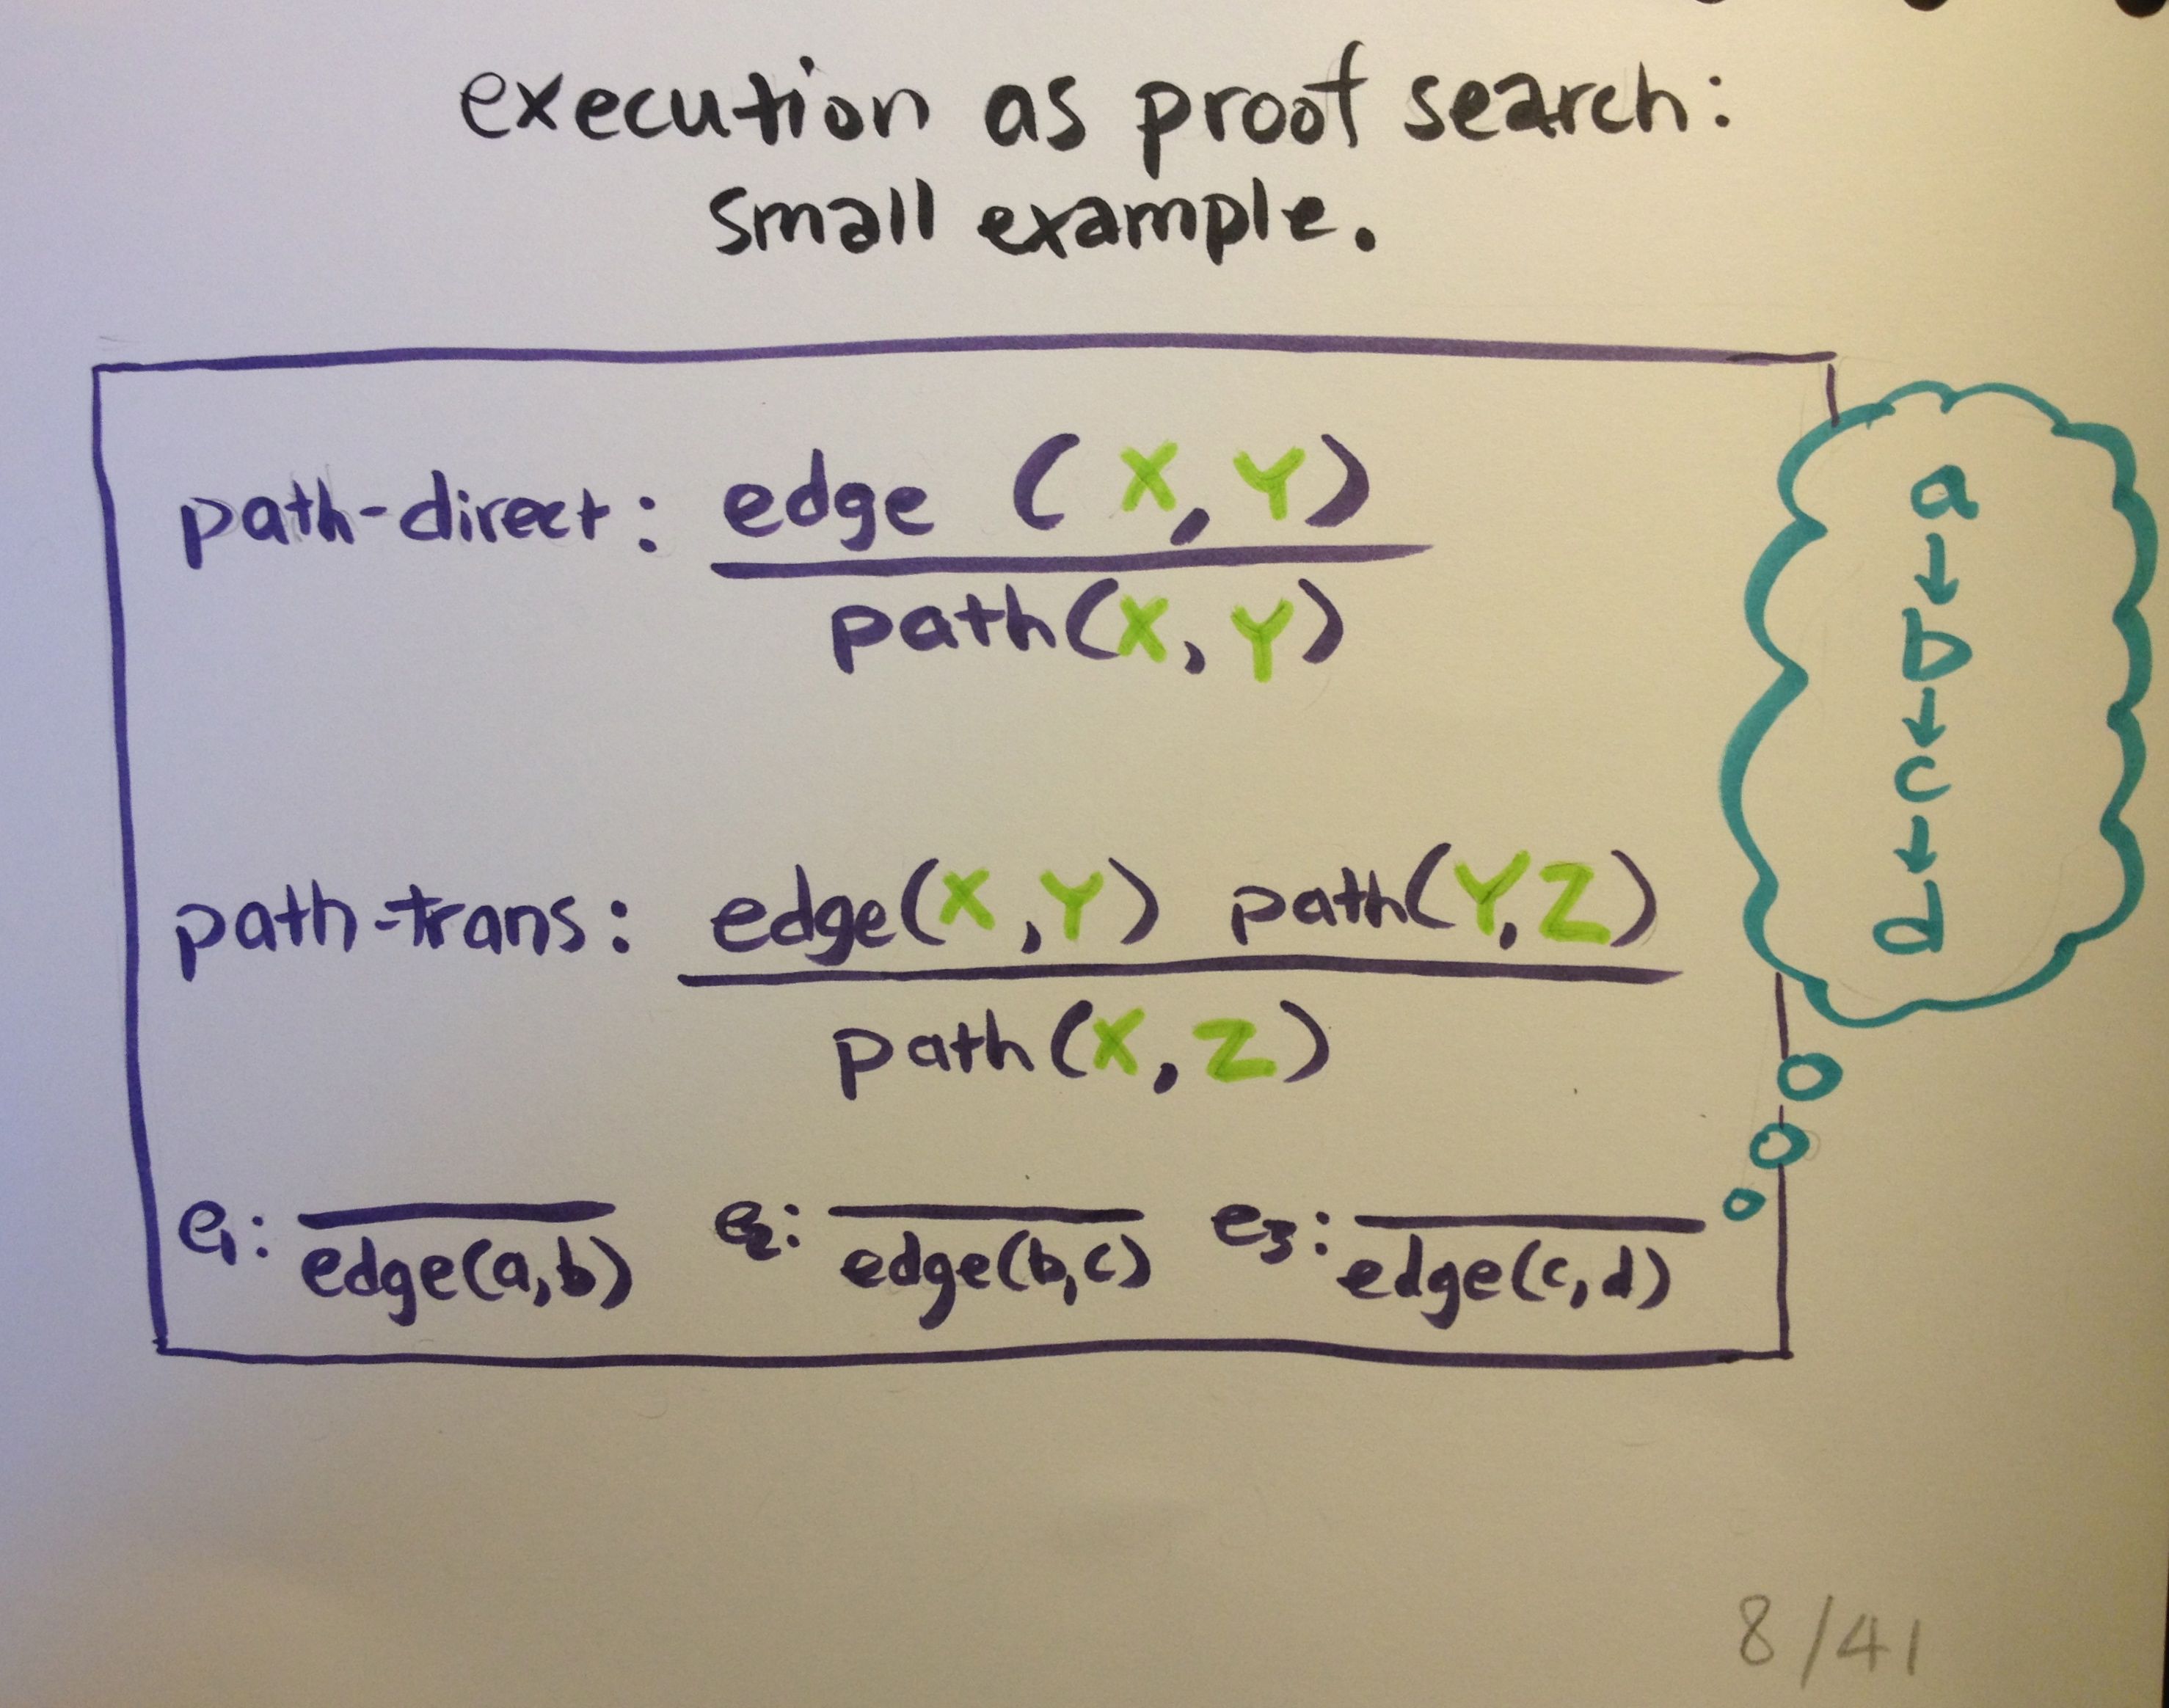 execution as proof search:
small example.
path-direct: edge (X, Y)
path(X, Y)
path-trans: edge(X, Y) path(Y, Z)
path(X, Z)
e1: edge(a,b) e2: edge(b,c) e3: edge(c,d)
a
↓
b
↓
c
↓
d
8/41